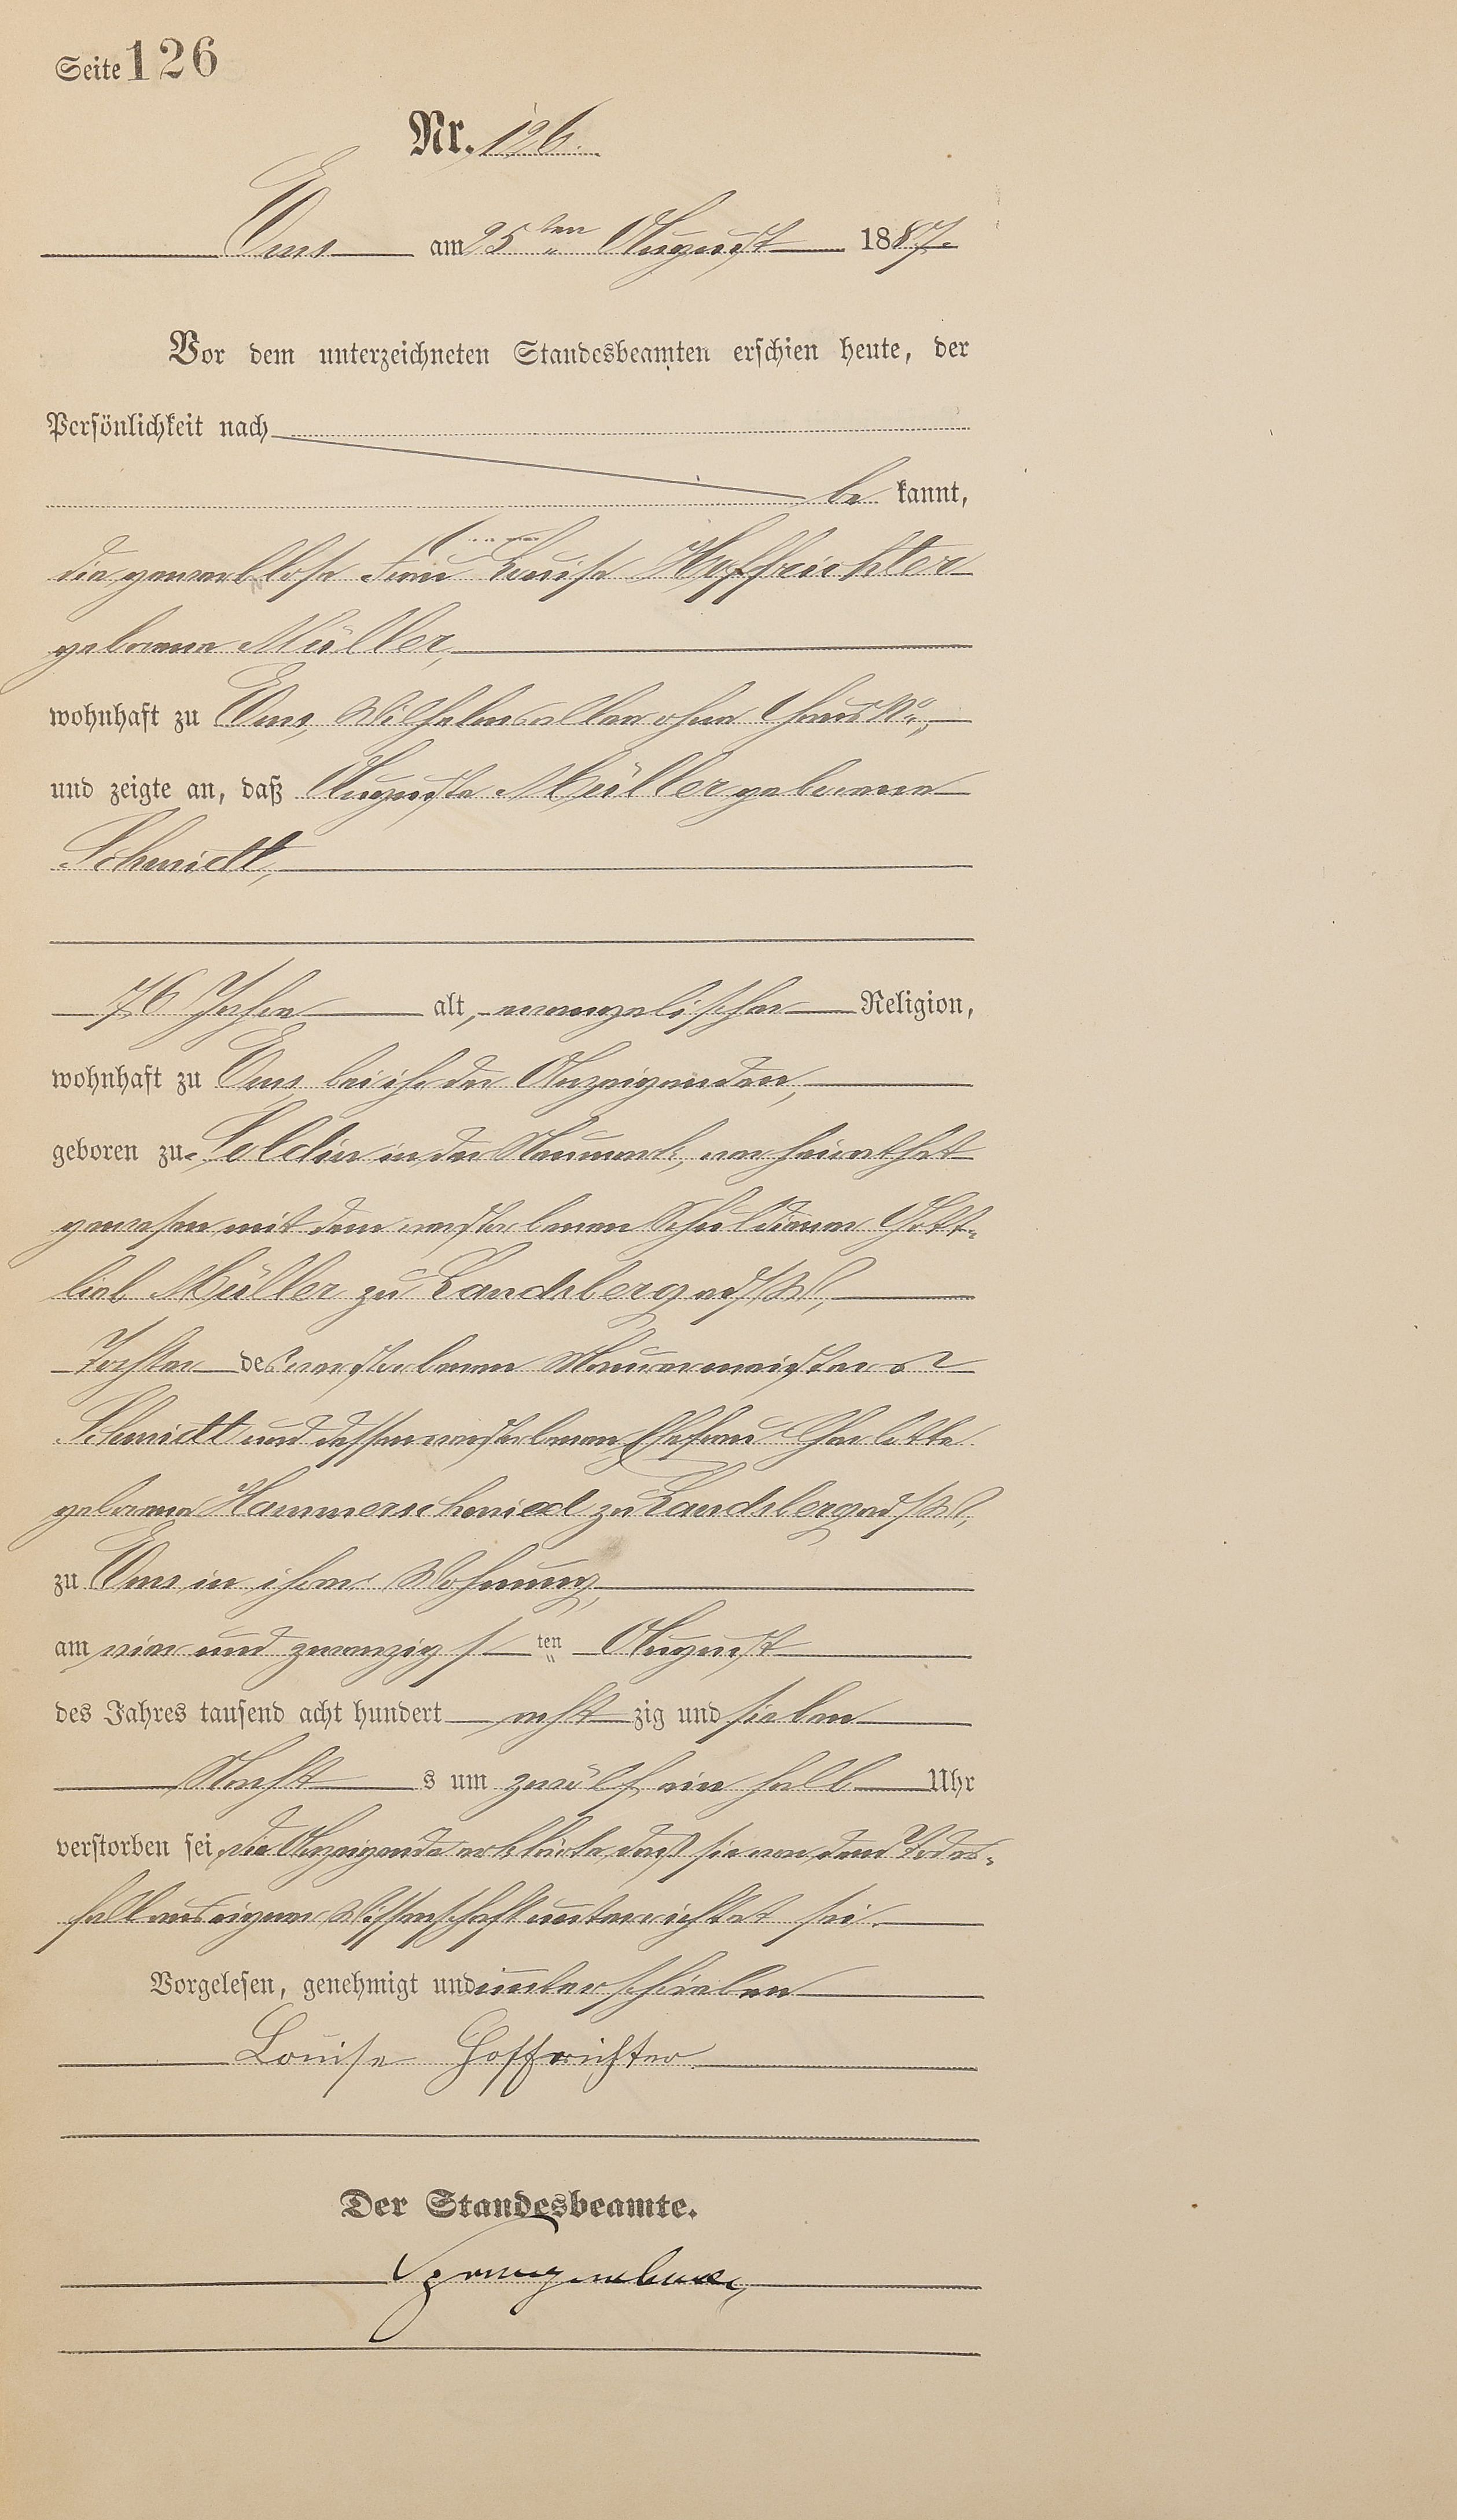 Seite 126
Nr. 126.
Ems am 25ten August 1887.
Vor dem unterzeichneten Standesbeamten erschien heute, der
Persönlichkeit nach
be kannt,
die gewerblose Frau Louise Hoffrichter
geborene Müller,
wohnhaft zu Ems, Wilhelmsallee ohne Haus No.,
und zeigte an, daß Auguste Müller geborene
Schmidt,
76 Jahre alt, evangelischer Religion,
wohnhaft zu Ems bei ihr der Anzeigenden,
geboren zu Soldin in der Neumark, verheirathet
gewesen mit dem verstorbenen Schuldiener Gott-
lieb Müller zu Landsberg a/d/W,
Tochter des verstorbenen Maurermeisters
Schmidt und dessen verstorbenen Ehefrau Charlotte
geborene Hammerschmied zu Landsberg a/d/W,
zu Ems in ihrer Wohnung,
am vier und zwanzigsten August
des Jahres tausend acht hundert acht zig und sieben
Nacht s um zwölf ein halb Uhr
verstorben sei, die Anzeigende erklärte, daß sie von dem Todes-
fall aus eigener Wissenschaft unterrichtet sei.
Vorgelesen, genehmigt und unterschrieben
Louise Hoffrichter
Der Standesbeamte.